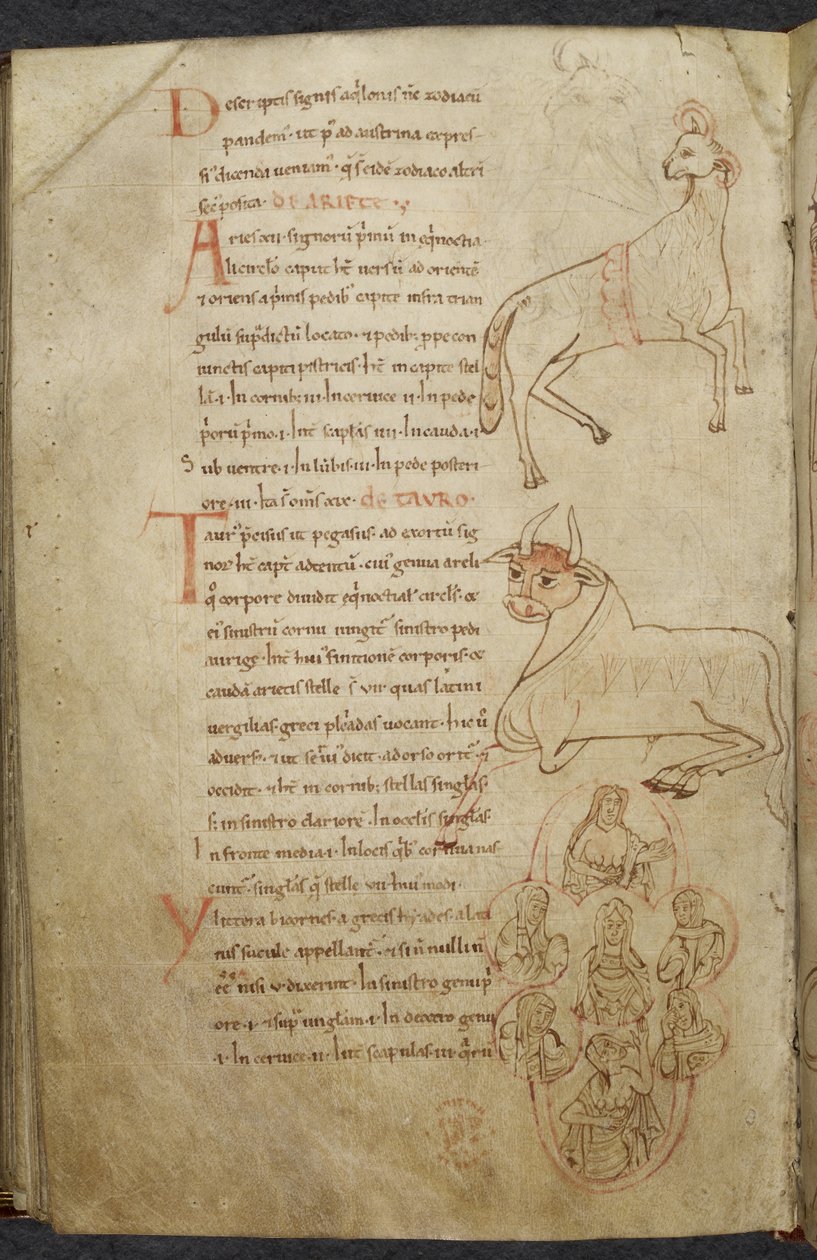 Descriptis signis aq̇lonis n̄c zodiacū
pandem᷒ · ut p᷒ ad austrina expres-
si᷒ dicenda veniam᷒ · q̄ s̄ eidē zodiaco altri
sec᷒ posita · DE ARIETE
Aries xii · signorū p̄mū in eq̄noctia
li circlo caput hꝫ versū ad orientē
⁊ oriens a p̄mis pedib᷒ capite infra trian
gulū sup̄dictū locato · ⁊ pedib; ꝓpe con
iunctis capiti pistricis · hꝫ in capite stel
lā · i · In cornib; iii · In cervice ii · In pede
p̄orū p̄mo · i · Int̄ scaplas iiii · In cauda · i ·
Sub ventre · i · In lūbis · iii · In pede posteri
ore · iii · Ita s̄ om̄s xix · DE TAVRO ·
Taur᷒ p̄cisus ut pegasus · ad exortū sig
nor̄ hꝫ capꝫ adtentū · cui᷒ genua a reli
q᷒ corpore dividit eq̄noctial᷒ circl᷒ · ex
ei᷒ sinistrū cornu iungit᷒ sinistro pedi
aurige · Int̄ hui᷒ finitionē corporis · ex
caudā arietis stelle s̄ vii quas latini
vergilias · greci pleadas vocant · hic ū
advers᷒ · ⁊ ut dicit · a dorso orit᷒ ⁊
occidit · ⁊ hꝫ in cornib; stellas singlas ·
s; in sinistro clariorē · In occlis singlas
In fronte media · i · In locis q᷒b᷒ cornua nas
cunt᷒ · singlas q̄ stelle vii hui᷒ modi ·
Y littera bicornes · a grecis hyades · a lati
nis sucule appellant᷒ · ⁊ si n̄ nulli n̄
eē᷒ nisi v dixerint · In sinistro genu p᷒
ore · i · ⁊ sup᷒ unglam · i · In dextro genu
· i · In cervice · ii · Int̄ scapulas · iii · q̄rū